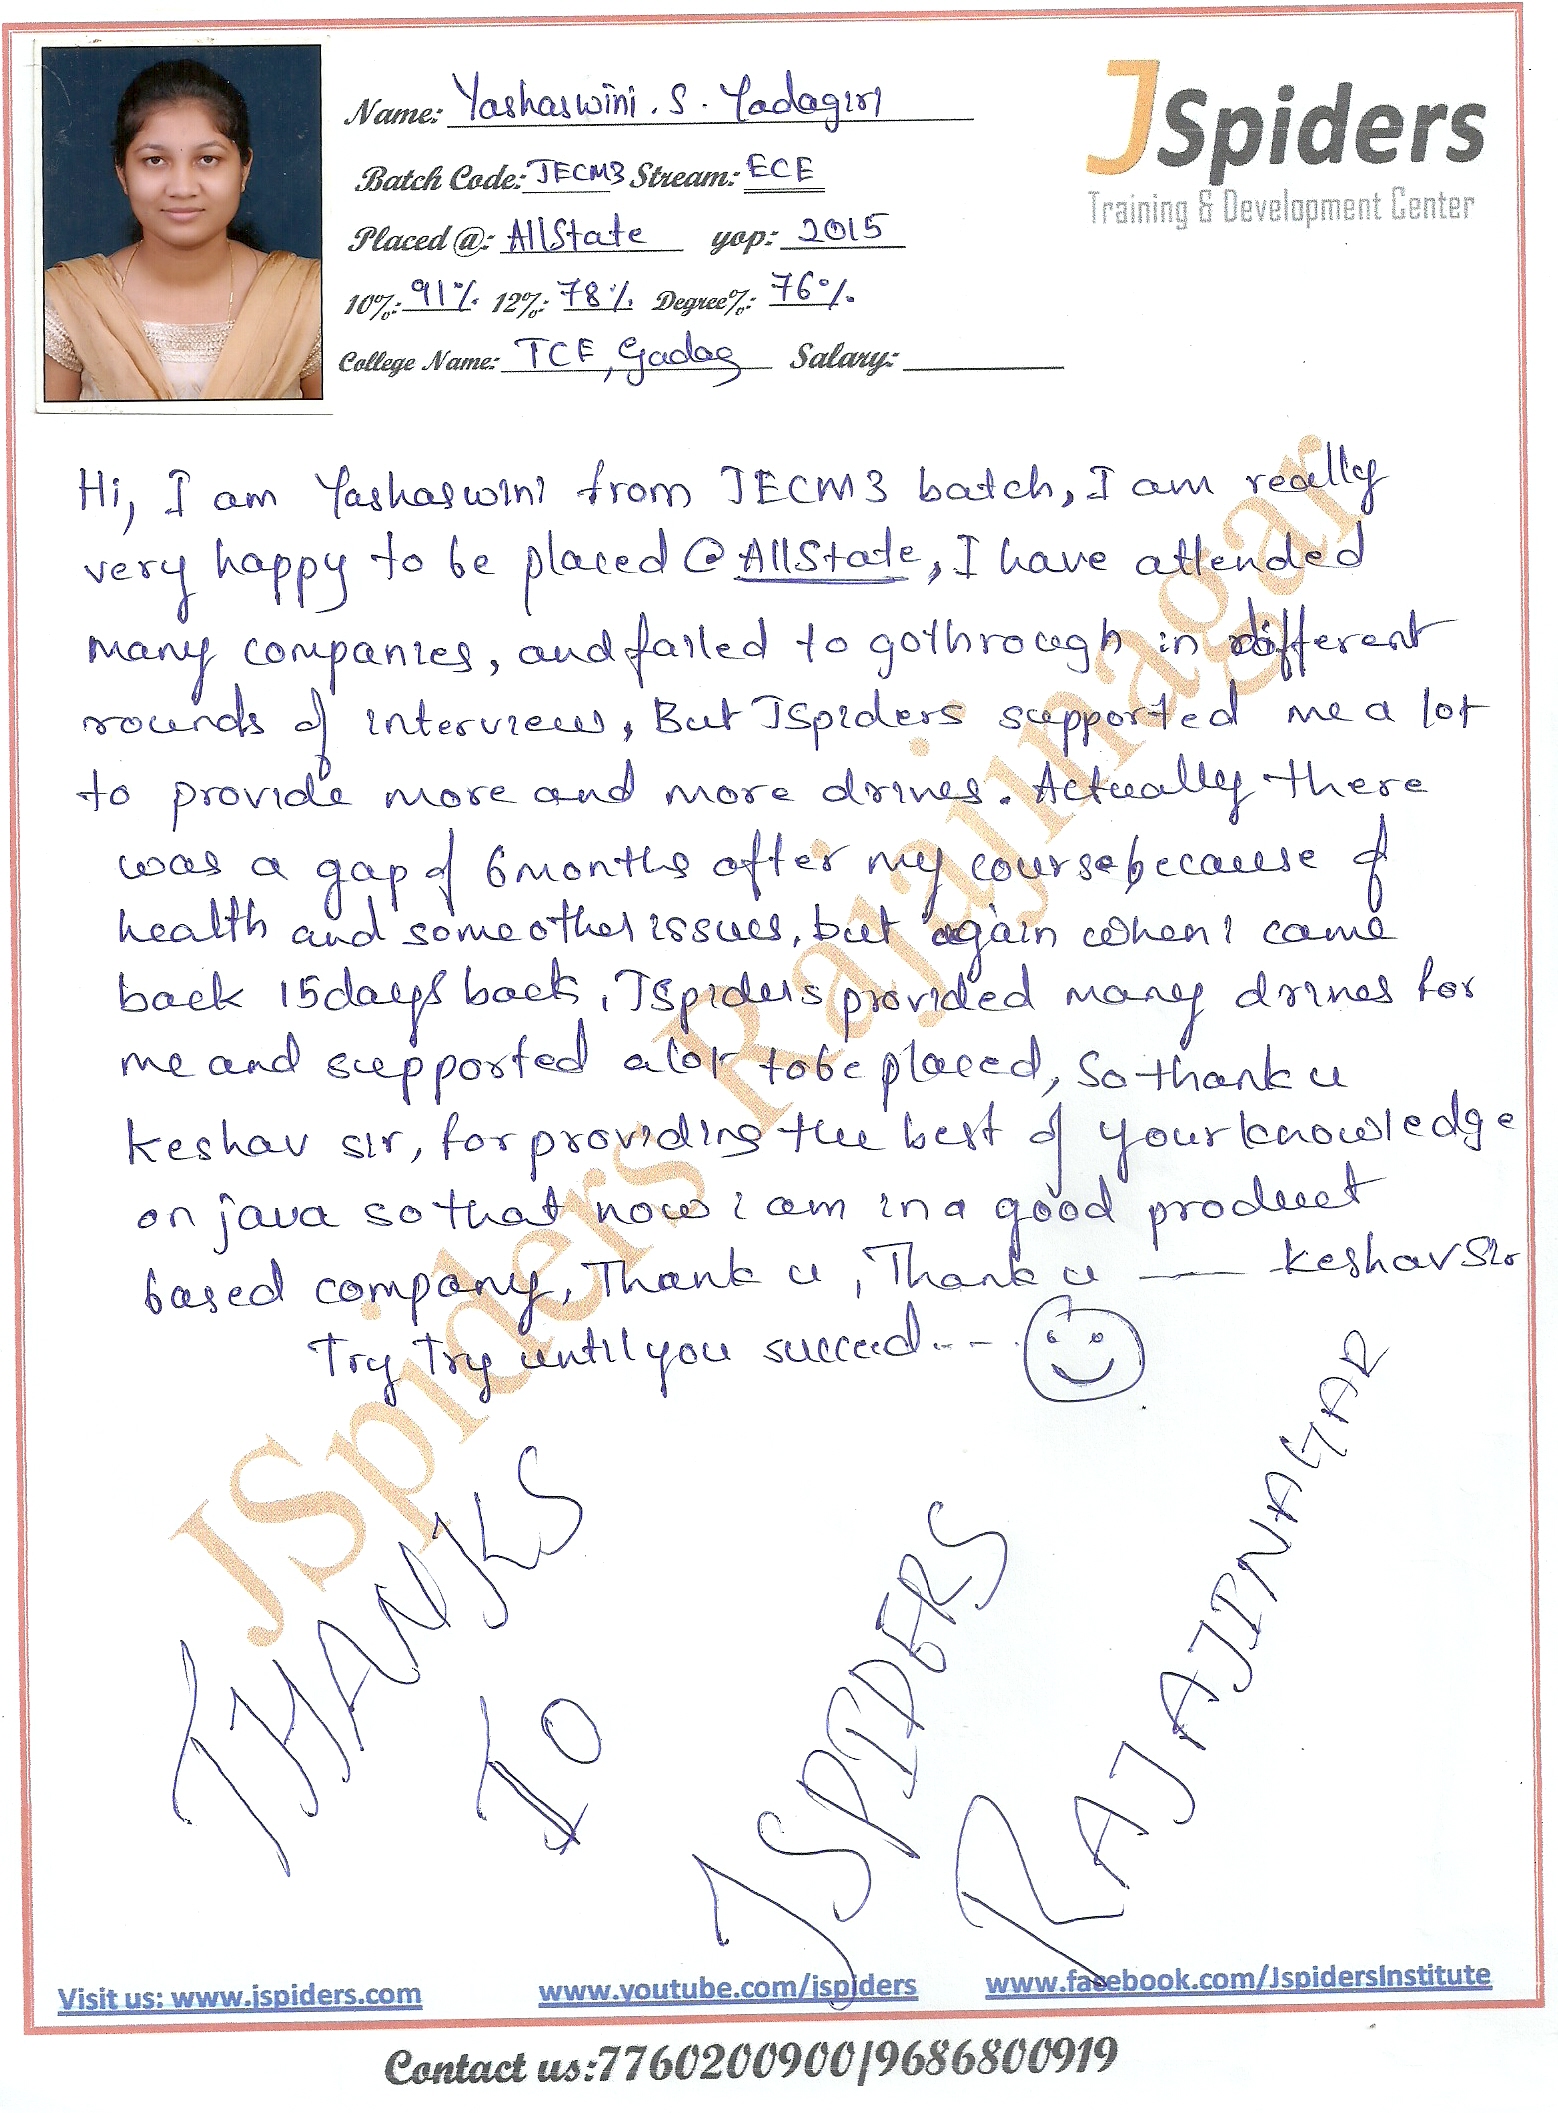 Name: Yashaswini . S . Yadagiri
JSpiders
Training & Development Center
Batch Code: JECM3 Stream: ECE
Placed @: AllState yop: 2015
10%: 91% 12%: 78% Degree%: 76%
College Name: TCE, Gadag Salary:
Hi, I am Yashaswini from JECM3 batch, I am really
very happy to be placed @ AllState, I have attended
many companies, and failed to gothrough in different
rounds of interview, But JSpiders supported me a lot
to provide more and more drives. Actually there
was a gap of 6 months after my course because of
health and some other issues, but again when i came
back 15days back, JSpiders provided many drives for
me and supported a lot to be placed, So thank u
Keshav sir, for providing the best of your knowledge
on java so that now i am in a good product
based company, Thank u, Thank u —— Keshav Sir
Try Try until you succeed---
JSpiders Rajajinagar
THANKS
TO
JSPIDERS
RAJAJINAGAR
Visit us: www.jspiders.com www.youtube.com/jspiders www.facebook.com/JspidersInstitute
Contact us:7760200900/9686800919